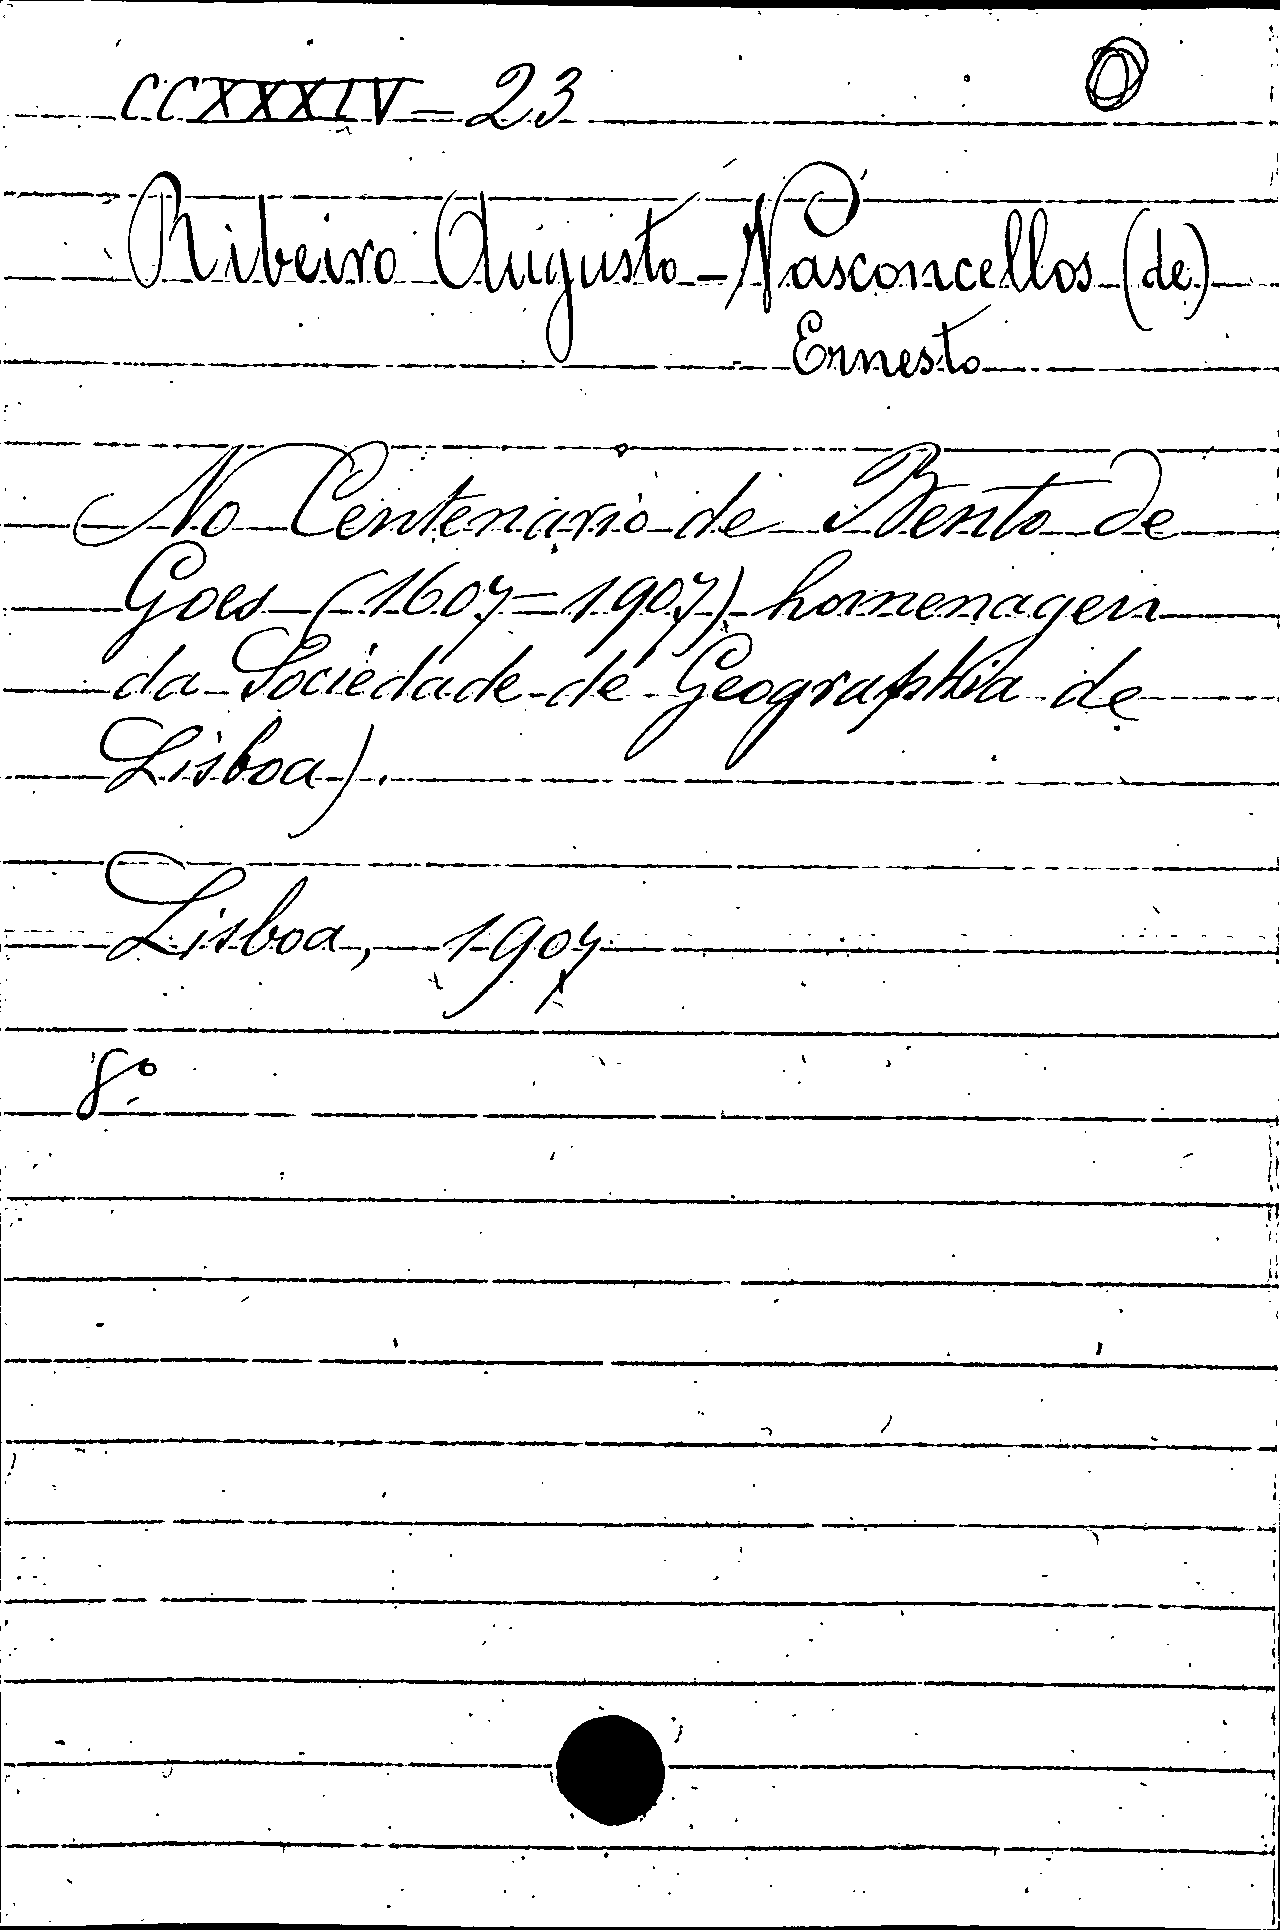 CCXXXIV - 23
Ribeiro Augusto - Vasconcellos (de)
Ernesto
No Centenario de Bento de
Goes (1607 = 1907) homenagem
da Sociedade de Geographia de
Lisboa).
Lisboa, 1907
8º